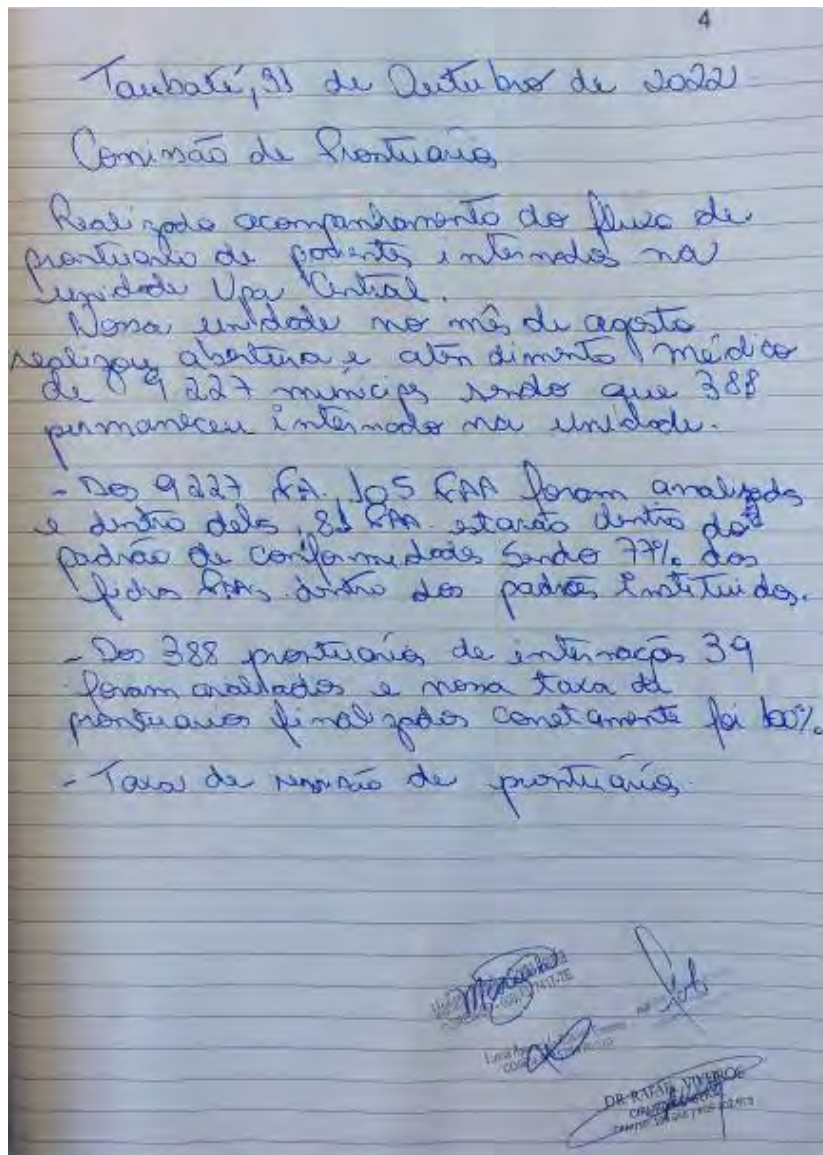 4
Taubaté, 31 de Outubro de 2022
Comissão de Prontuarios
Realizado acompanhamento do fluxo de
prontuario de pacientes internados na
unidade Upa Central.
Nossa unidade no mês de agosto
realizou abertura e atendimento médico
de 9 227 municipes sendo que 388
permaneceu internado na unidade.
- Dos 9227 FA. 105 FAA foram analizados
e dentro delas, 81 FAA estarão dentro do
padrão de conformidades Sendo 77% das
fichas FAAs dentro dos padrões Instituidos.
- Dos 388 prontuarios de internação 39
foram analizados e nossa taxa de
prontuarios finalizados corretamente foi 100%.
- Taxa de revisão de prontuários.
DR. RAFAEL